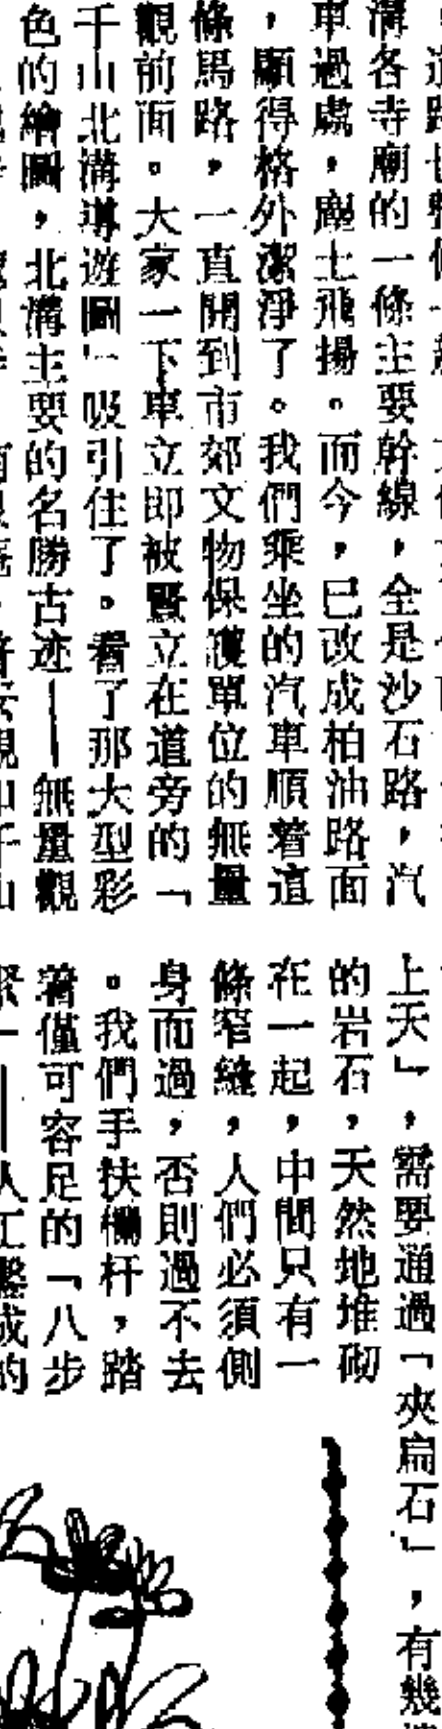 溝各寺廟的一條主要幹線，全是沙石路，汽
車過處，塵土飛揚。而今，已改成柏油路面
，顯得格外潔淨了。我們乘坐的汽車順着這
條馬路，一直開到市郊文物保護單位的無量
觀前面。大家一下車立即被豎立在道旁的「
千山北溝導遊圖」吸引住了。看了那大型彩
色的繪圖，北溝主要的名勝古迹——無量觀
上天」，需要通過「夾扁石」，有幾
的岩石，天然地堆砌
在一起，中間只有一
條窄縫，人們必須側
身而過，否則過不去
。我們手扶欄杆，踏
着僅可容足的「八步